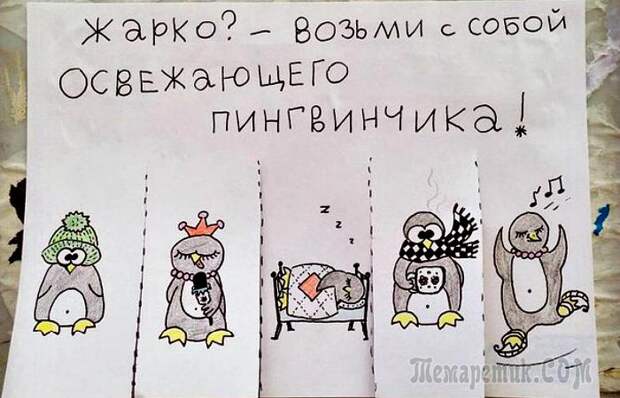 ЖАРКО? – ВОЗЬМИ С СОБОЙ
ОСВЕЖАЮЩЕГО
ПИНГВИНЧИКА!
z
z
z
Темаретик.COM